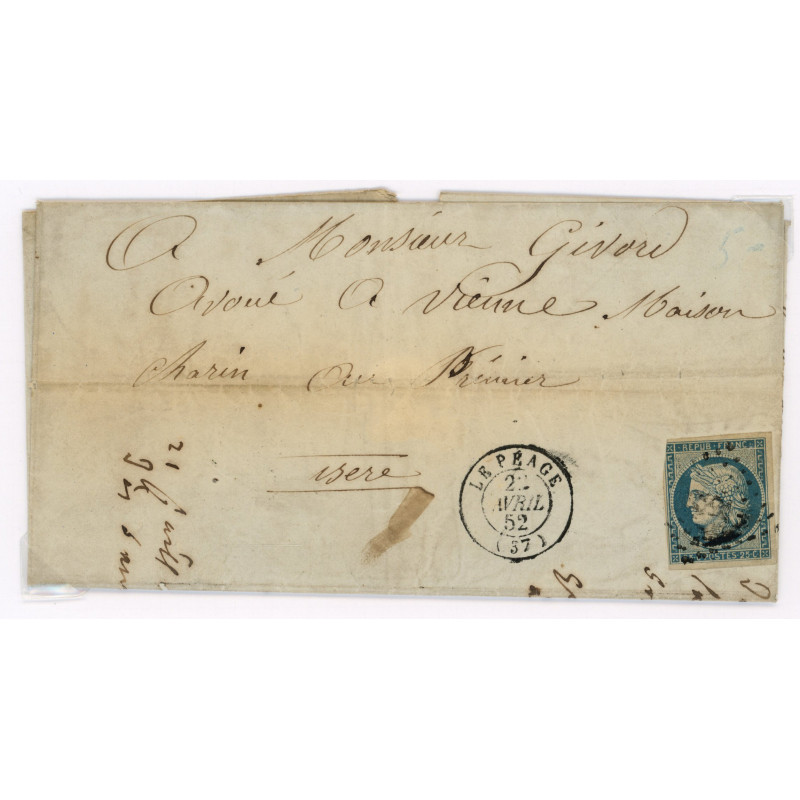 A Monsieur Givord
Avoué A Vienne Maison
Charin Prémier
isere
5
LE PÉAGE
22
AVRIL
52
(37)
REPUB. FRANC.
POSTES 25 C
21